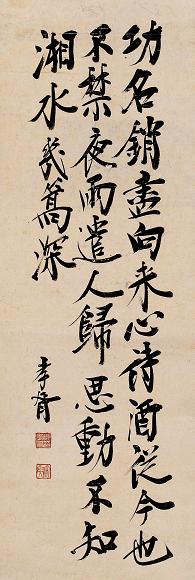 功名銷盡向来心詩酒從今也
不禁夜雨遣人歸思動不知
湘水幾篙深
孝胥